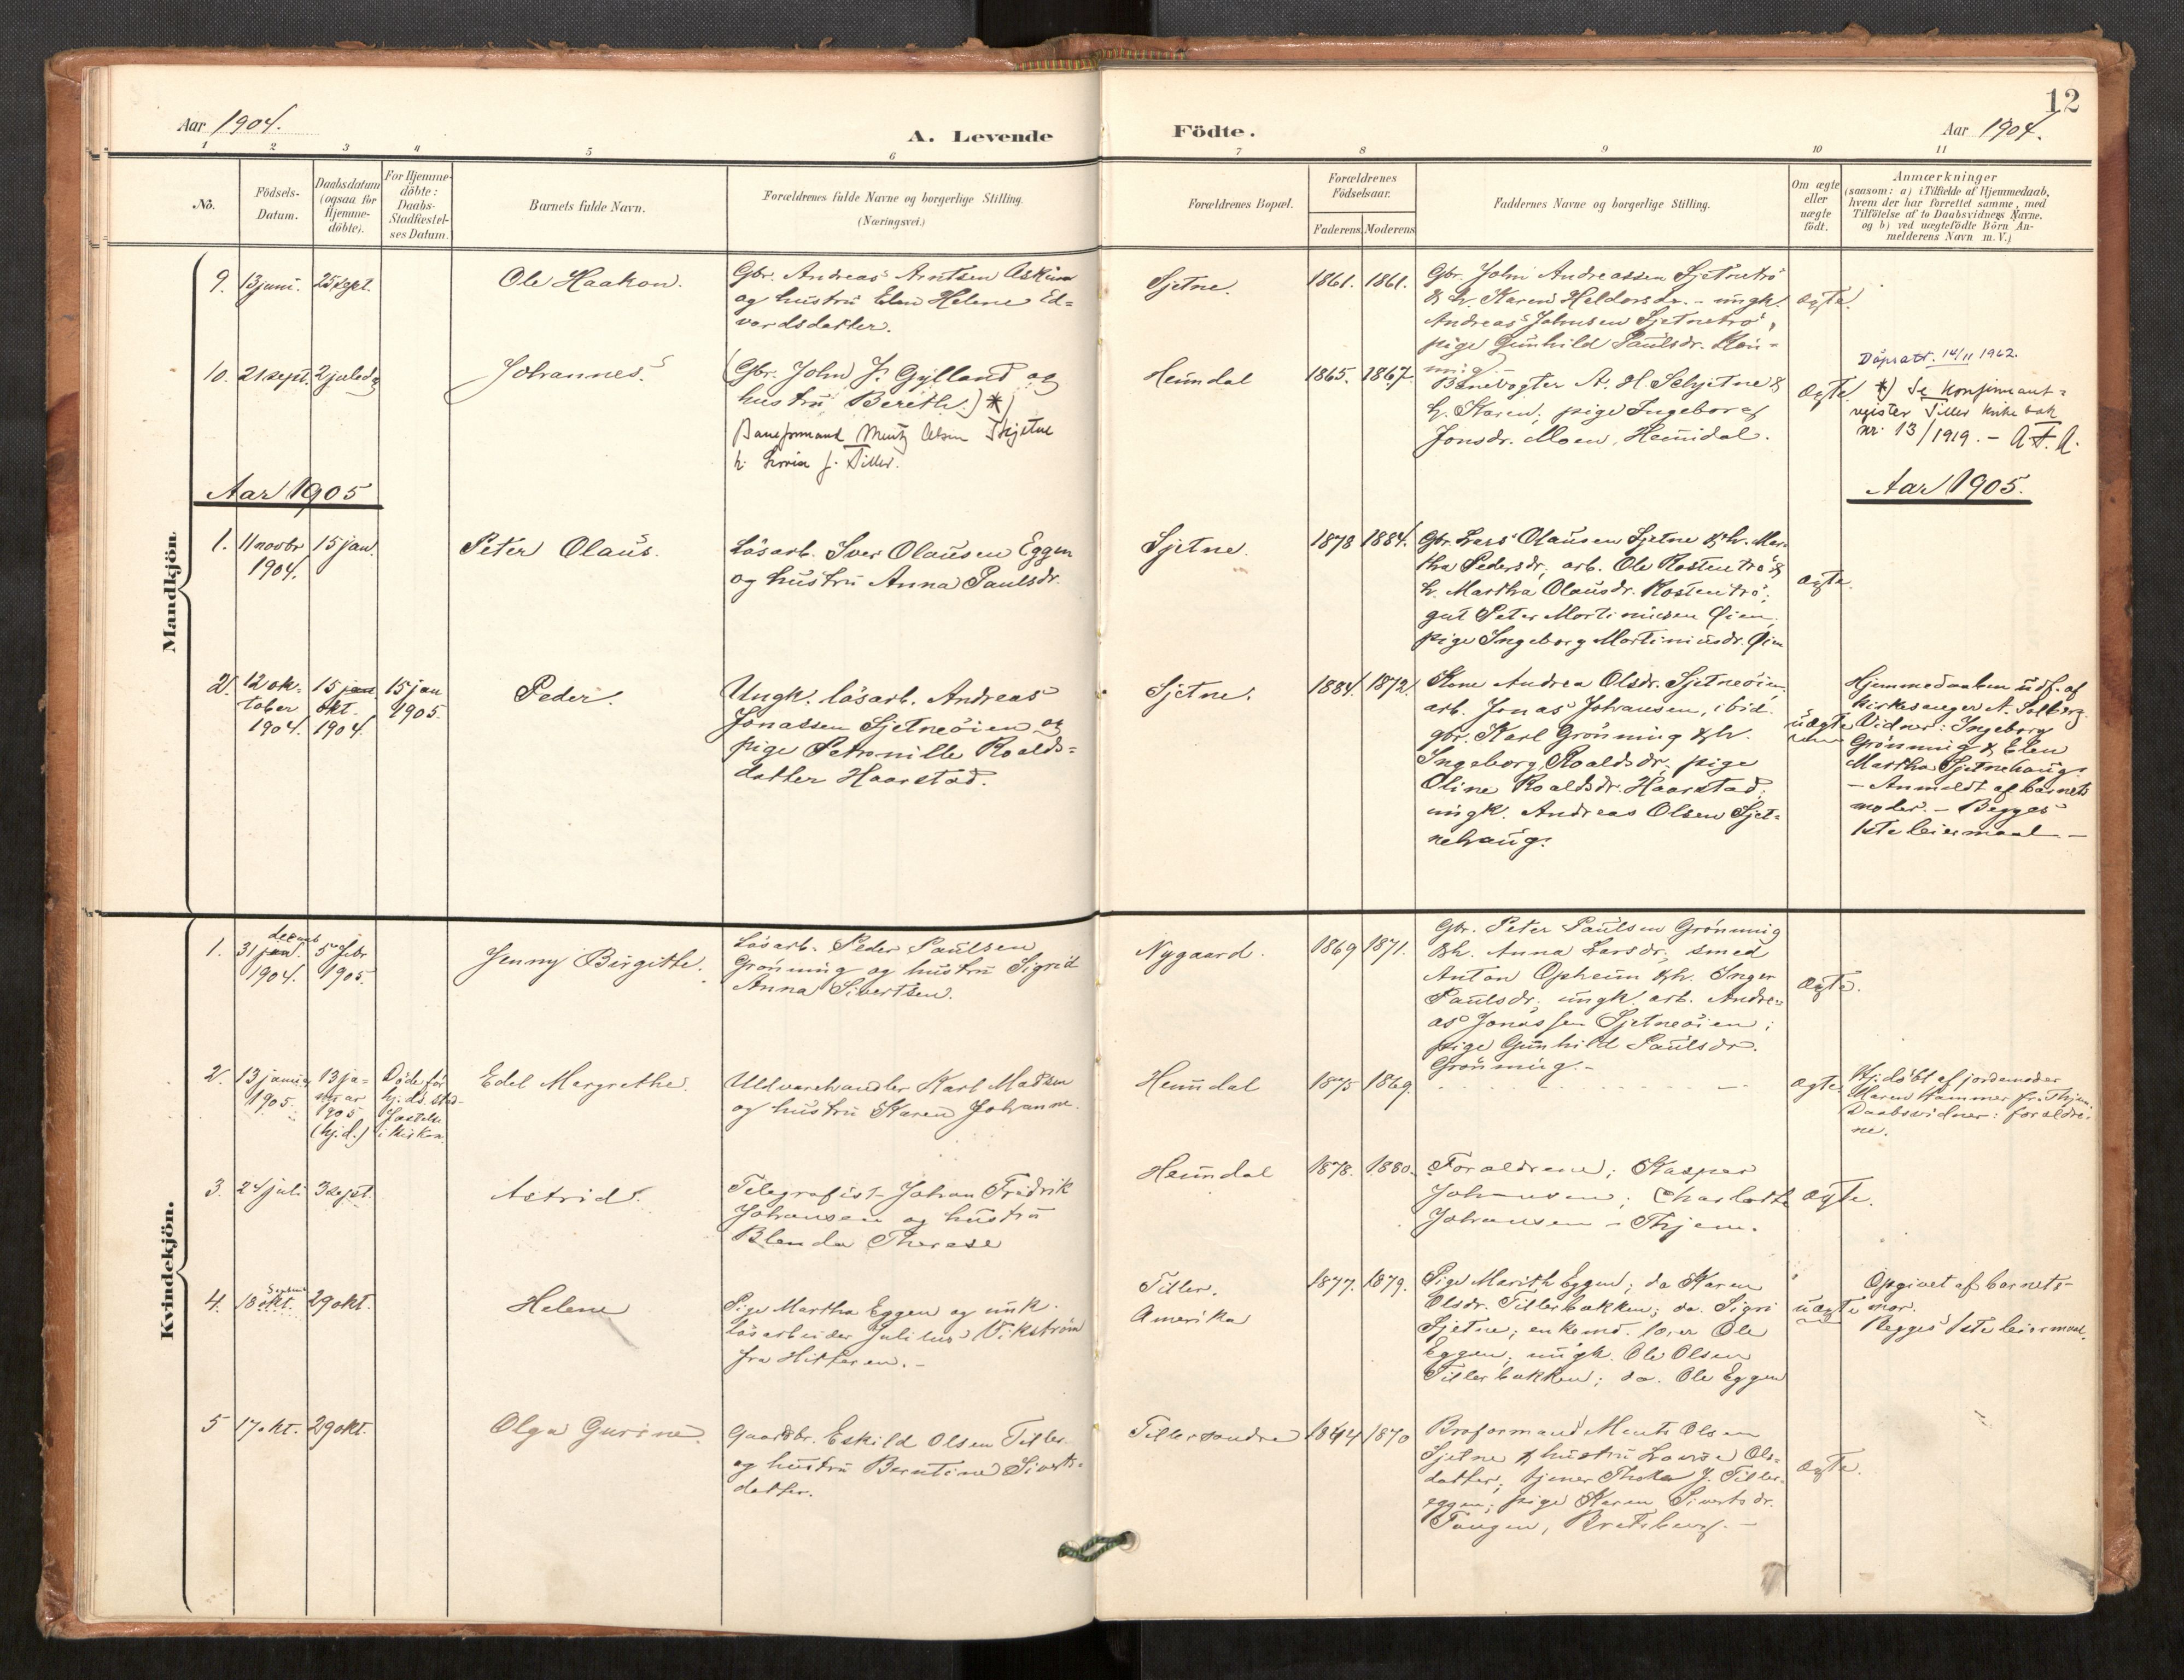 Aar 1904.
A. Levende
Födte.
Aar 1904.
12
1 2 3 4 5 6 7 8 9 10 11
No.
Födsels-
Datum.
Daabsdatum
(ogsaa for
Hjemme-
döbte).
For Hjemme-
döbte:
Daabs-
Stadfæstel-
ses Datum.
Barnets fulde Navn.
Forældrenes fulde Navne og borgerlige Stilling.
(Næringsvei.)
Forældrenes Bopæl.
Forældrenes
Födselsaar.
Faderens. Moderens
Faddernes Navne og borgerlige Stilling.
Om ægte
eller
uægte
födt.
Anmærkninger
(saasom: a) i Tilfælde af Hjemmedaab,
hvem der har forrettet samme, med
Tilföielse af to Daabsvidners Navne.
og b) ved uægtefödte Börn An-
melderens Navn m. V.)
Mandkjön.
9. 13 juni. 25 sept.
Ole Haakon.
Gbr. Andreas Arntsen
og hustru Elen Helene Ed-
vardsdatter.
Sjetne.
1861. 1861.
Gbr. John Andreassen Sjetnetrö
& h. Karen Heldorsdr. - ungk.
Andreas Johnsen Sjetnetrö,
pige Gunhild Paulsdr. Grön-
ning.
ægte.
10. 21 sept. 2 juledag
Johannes.
(Gbr. John J. Gylland og
hustru Bereth.) *)
Baneformand Mentz Olsen Skjetne
h. Lovise f. Tiller.
Heimdal
1865. 1867.
Banevogter A. H. Schjetne &
h. Karen; pige Ingeborg
Jonsdr. Moen, Heimdal.
ægte
Dåpsatt. 14/11 1962.
*) Se konfirmant-
register Tiller kirkebok
nr. 13/1919. - A. F. A.
Aar 1905
Aar 1905.
1. 11 novbr 15 jan.
1904.
Peter Olaus.
Lösarb. Iver Olausen Eggen
og hustru Anna Paulsdr.
Sjetne.
1878 1884.
Gbr. Lars Olausen Sjetne & h. Mar-
tha Pedersdr. arb. Ole Rostentrö &
h. Martha Olausdr. Rostentrö;
gut Peter Mortinusen Öien,
pige Ingeborg Mortinusdr. Öien
ægte.
2. 12 ok-
tober
1904.
15 jan
okt.
1904.
15 jan
1905.
Peder.
Ungk. lösarb. Andreas
Jonassen Sjetneöien og
pige Petronille Roalds-
datter Haarstad.
Sjetne.
1884. 1872.
Kone Andrea Olsdr. Sjetneöien.
arb. Jonas Johansen, ibid.
gbr. Karl Grönning & h.
Ingeborg Roaldsdr. pige
Oline Roaldsdr. Haarstad;
ungk. Andreas Olsen Sjet-
nehaug.
uægte
Hjemmedaaben udf. af
kirkesanger A. Solberg.
Vidner: Ingeborg
Grönning & Elen
Martha Sjetnehaug.
- Anmeldt af barnets
moder. - Begges
1ste leiermaal -
Kvindekjön.
1. 31 jan. decemb
1904.
5 febr
1905.
Jenny Birgitte.
Lösarb. Peder Paulsen
Grönning og hustru Sigrid
Anna Sivertsen.
Nygaard.
1869 1871.
Gbr. Peter Paulsen Grönning
& h. Anna Larsdr, smed
Anton Opheim & h. Inger
Paulsdr. ungk. arb. Andre-
as Jonassen Sjetneöien;
pige Gunhild Paulsdr.
Grönning. -
ægte.
2. 13 januar
1905
13 ja-
nuar
1905
(hj.d.)
Döde för
hj. ds. stad-
fæstelse
i kirken.
Edel Margrethe.
Uldvarehandler Karl Madsen
og hustru Karen Johanne.
Heimdal
1875 1869.
ægte.
Hj. döbt af jordemoder
Maren Hammer fr. Thjem.
Daabsvidner: forældre-
ne.
3. 24 juli 3 sept.
Astrid.
Telegrafist Johan Fredrik
Johansen og hustru
Blenda Therese
Heimdal
1878. 1880.
Forældrene; Kasper
Johansen; Charlotte
Johansen - Thjem.
ægte.
4. 18 okt. 29 okt.
Helene
Pige Martha Eggen og unk.
lösarbeider Julius Vikström
fra Hitteren. -
Tiller.
Amerika
1877. 1879.
Pige Marith Eggen; do Karen
Olsdr. Tillerbakken; do. Sigri
Sjetne; enkemd. Ole
Eggen; ungk. Ole Olsen
Tillerbakken; do. Ole Eggen
uægte
Opgivet af barnets
mor.
Begges 1ste leiermaal.
5 17 okt. 29 okt.
Olga Gurine.
Gaardbr. Eskild Olsen Tiller
og hustru Berntine Siverts-
datter.
Tiller söndre
1844 1870
Broformand Ments Olsen
Sjetne & hustru Lovise Ols-
datter; tjener J. Tiller-
eggen; pige Karen Sivertsdr.
Tangen, Bratsberg. -
ægte.